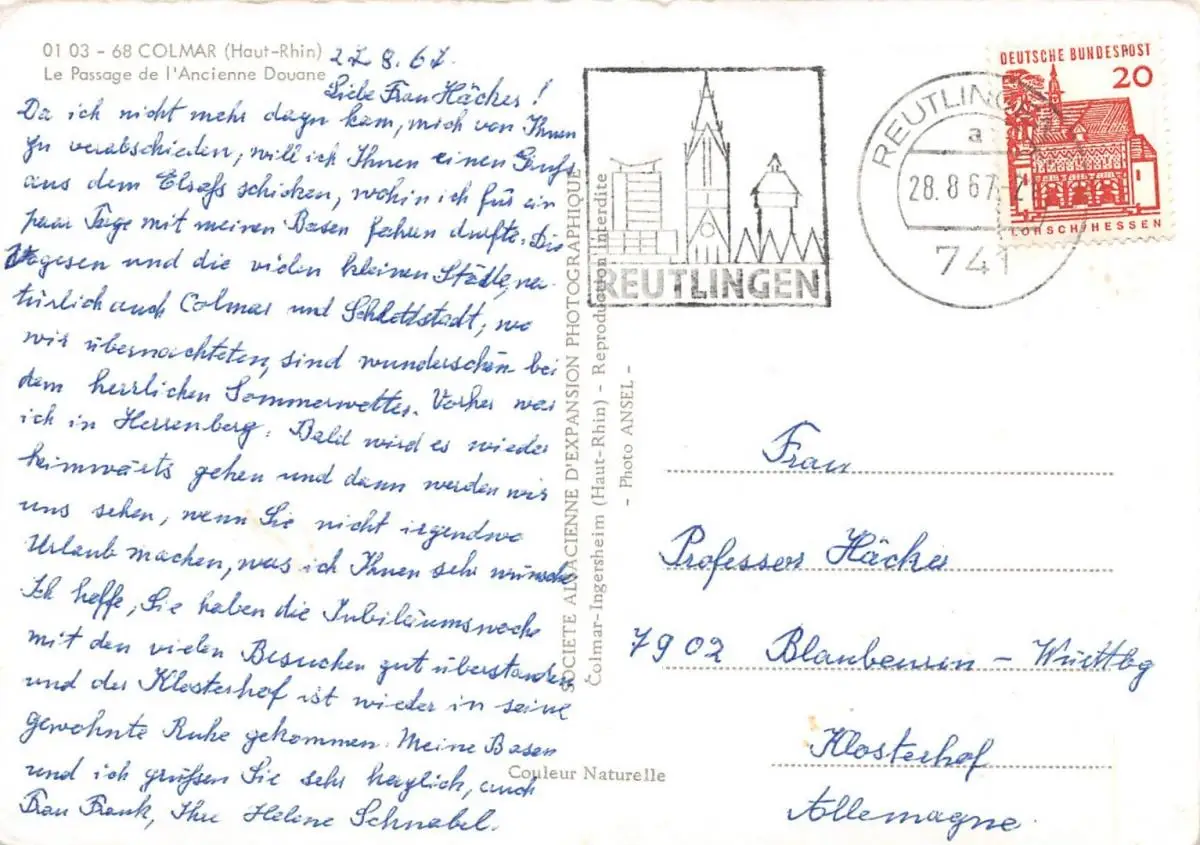 01 03 - 68 COLMAR (Haut-Rhin)
Le Passage de l'Ancienne Douane
27.8.67.
Liebe Frau Häcker!
Da ich nicht mehr dazu kam, mich von Ihnen
zu verabschieden, will ich Ihnen einen Gruß
aus dem Elsaß schicken, wohin ich für ein
paar Tage mit meinen Basen fahren durfte. Die
Vogesen und die vielen kleinen Städte, na-
türlich auch Colmar und Schlettstadt, wo
wir übernachteten, sind wunderschön bei
dem herrlichen Sommerwetter. Vorher war
ich in Herrenberg. Bald wird es wieder
heimwärts gehen und dann werden wir
uns sehen, wenn Sie nicht irgendwo
Urlaub machen, was ich Ihnen sehr wünsche
Ich hoffe, Sie haben die Jubiläumswoche
mit den vielen Besuchen gut überstanden
und der Klosterhof ist wieder in seine
gewohnte Ruhe gekommen. Meine Basen
und ich grüßen Sie sehr herzlich, auch
Frau Frank, Ihre Helene Schnabel.
SOCIETE ALSACIENNE D'EXPANSION PHOTOGRAPHIQUE
Colmar-Ingersheim (Haut-Rhin) - Reproduction Interdite
- Photo ANSEL -
Couleur Naturelle
REUTLINGEN
REUTLINGEN
a
28.8.67
741
DEUTSCHE BUNDESPOST
20
LORSCH/HESSEN
Frau
Professor Häcker
7902 Blaubeuren - Württbg
Klosterhof
Allemagne.